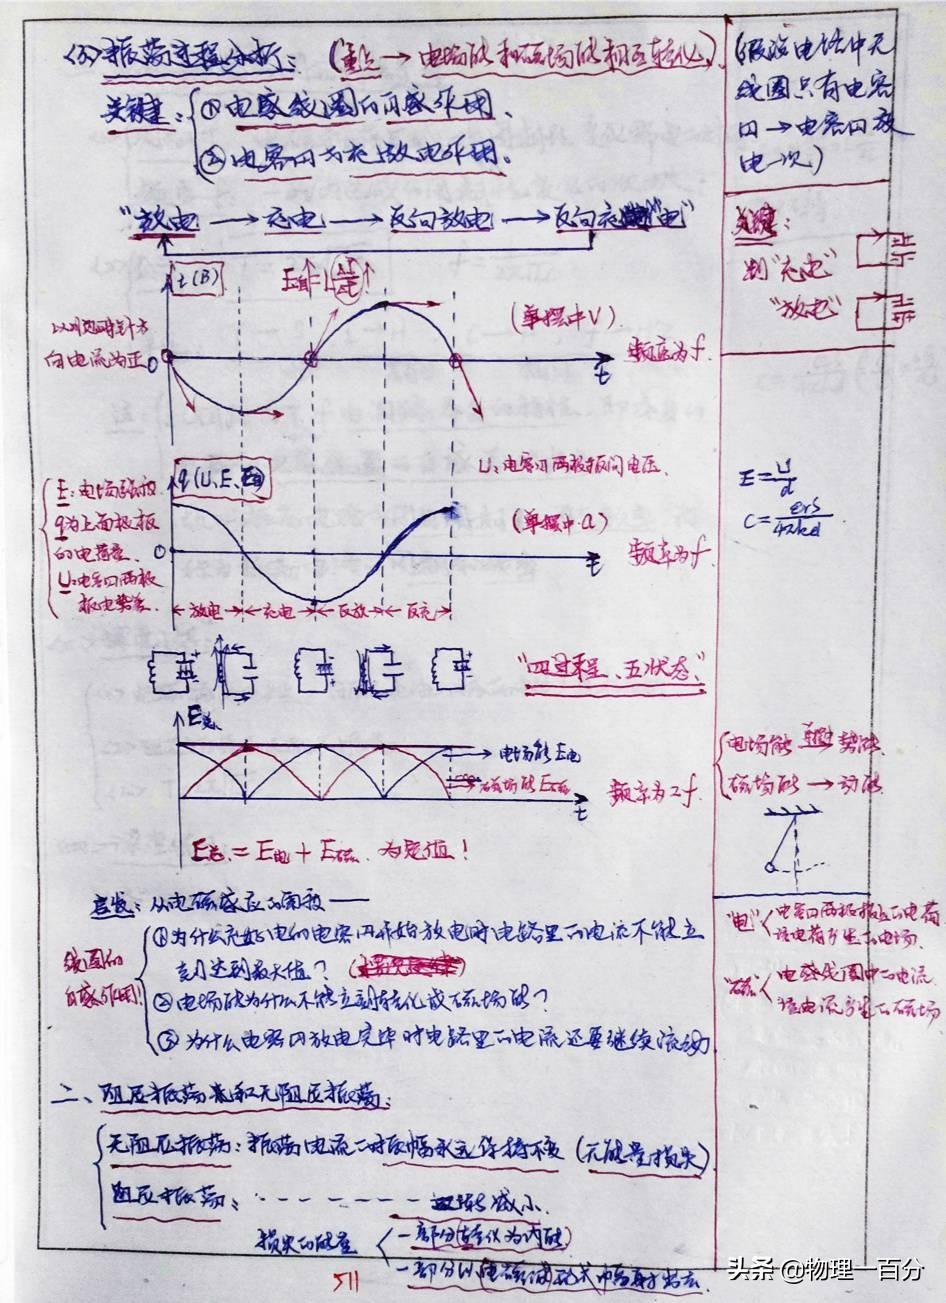 (3)振荡过程分析: (重点→电场能和磁场能相互转化)
关键: ①电感线圈的自感作用.
②电容器的充放电作用.
"放电→充电→反向放电→反向充电"
i(B)
E自=L Δi/Δt↑
(单摆中V)
以顺时针方
向电流为正
O
t
频率为f.
q(U、E、E电)
U:电容器两极板间电压.
(单摆中a)
E:电场强度
q为上面极板
的电荷量.
U:电容器两极
板电势差.
O
t
频率为f
放电 充电 反放 反充
"四过程、五状态"
E总
电场能E电
磁场能E磁
频率为2f.
t
E总=E电+E磁 为定值!
意识:从电磁感应的角度——
线圈的
自感作用!
①为什么充好电的电容器开始放电时电路里的电流不能立
刻达到最大值?
②电场能为什么不能立刻转化成磁场能?
③为什么电容器放电完毕时电路里的电流还要继续流动
二、阻尼振荡和无阻尼振荡:
无阻尼振荡:振荡电流的振幅永远保持不变(无能量损失)
阻尼振荡: 逐渐减小.
损失的能量
一部分转化为内能
一部分以电磁波的形式辐射出去
511
(假设电路中无
线圈只有电容
器→电容器放
电一次)
关键:
判"充电"
"放电"
E=U/d
C=εrS/4πkd
电场能 势能
磁场能→动能
"电" 电容器两极板上的电荷
该电荷产生的电场.
"磁" 电感线圈中的电流
该电流产生的磁场
头条 @物理一百分